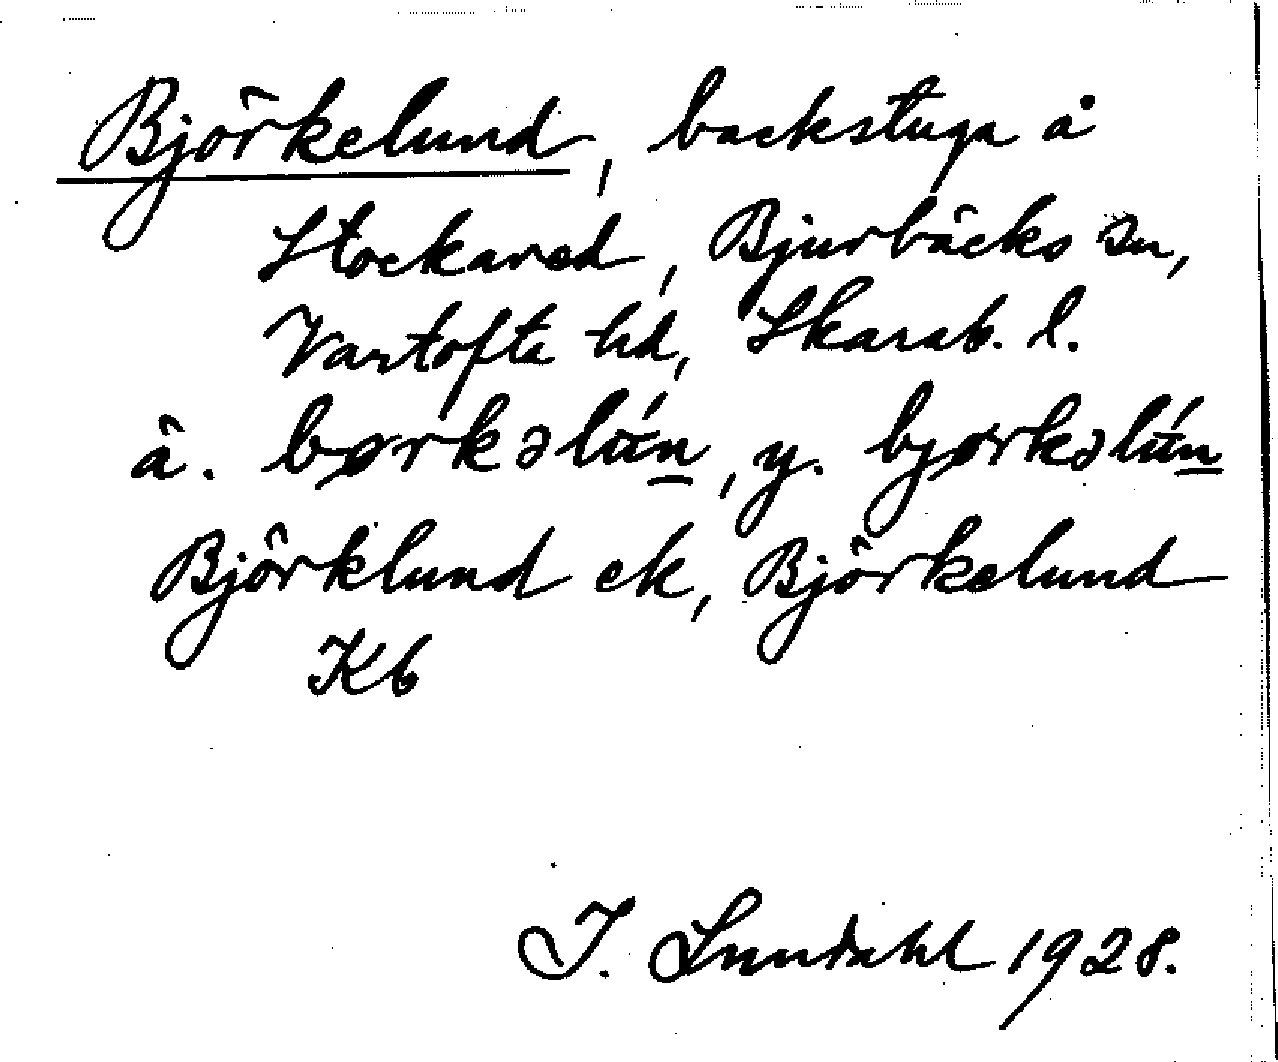 Björkelund, backstuga å
Stockared, Bjurbäcks sn,
Vartofta hd, Skarab. l.
ä. børkəlún, y. bjørkəlún
Björklund ek, Björkelund
Kb
I. Lundahl 1928.